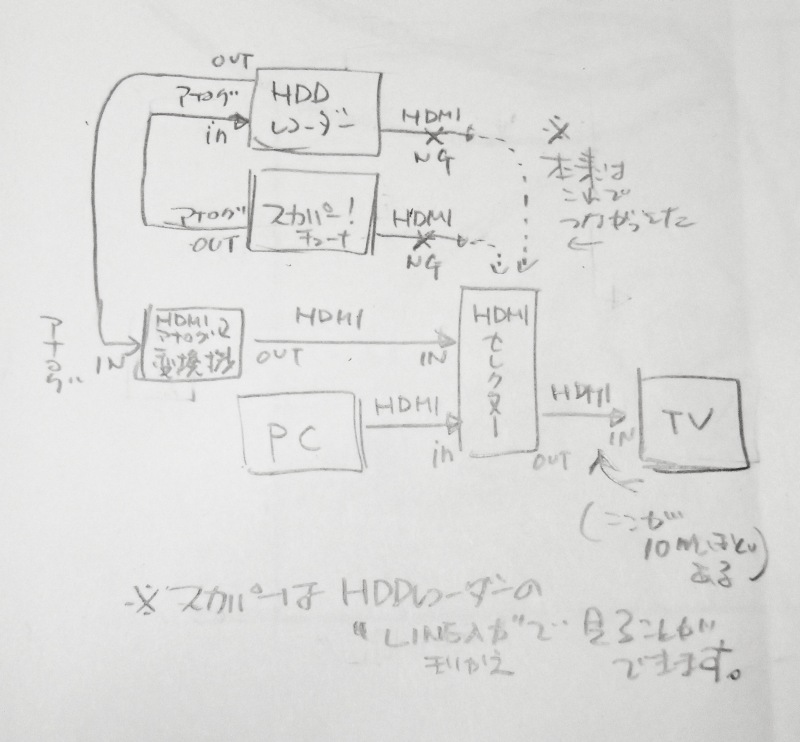 OUT
アナログ
in
HDD
レコーダー
HDMI
NG
※
本来は
これで
つながってた
アナログ
OUT
スカパー!
チューナ
HDMI
NG
アナログ
IN
HDMI
アナログ
変換機
HDMI
OUT
IN
HDMI
セレクター
PC
HDMI
in
HDMI
OUT
IN
TV
(ここが
10m
ある)
※スカパーはHDDレコーダーの
"LINE入力"で見ることが
できます。